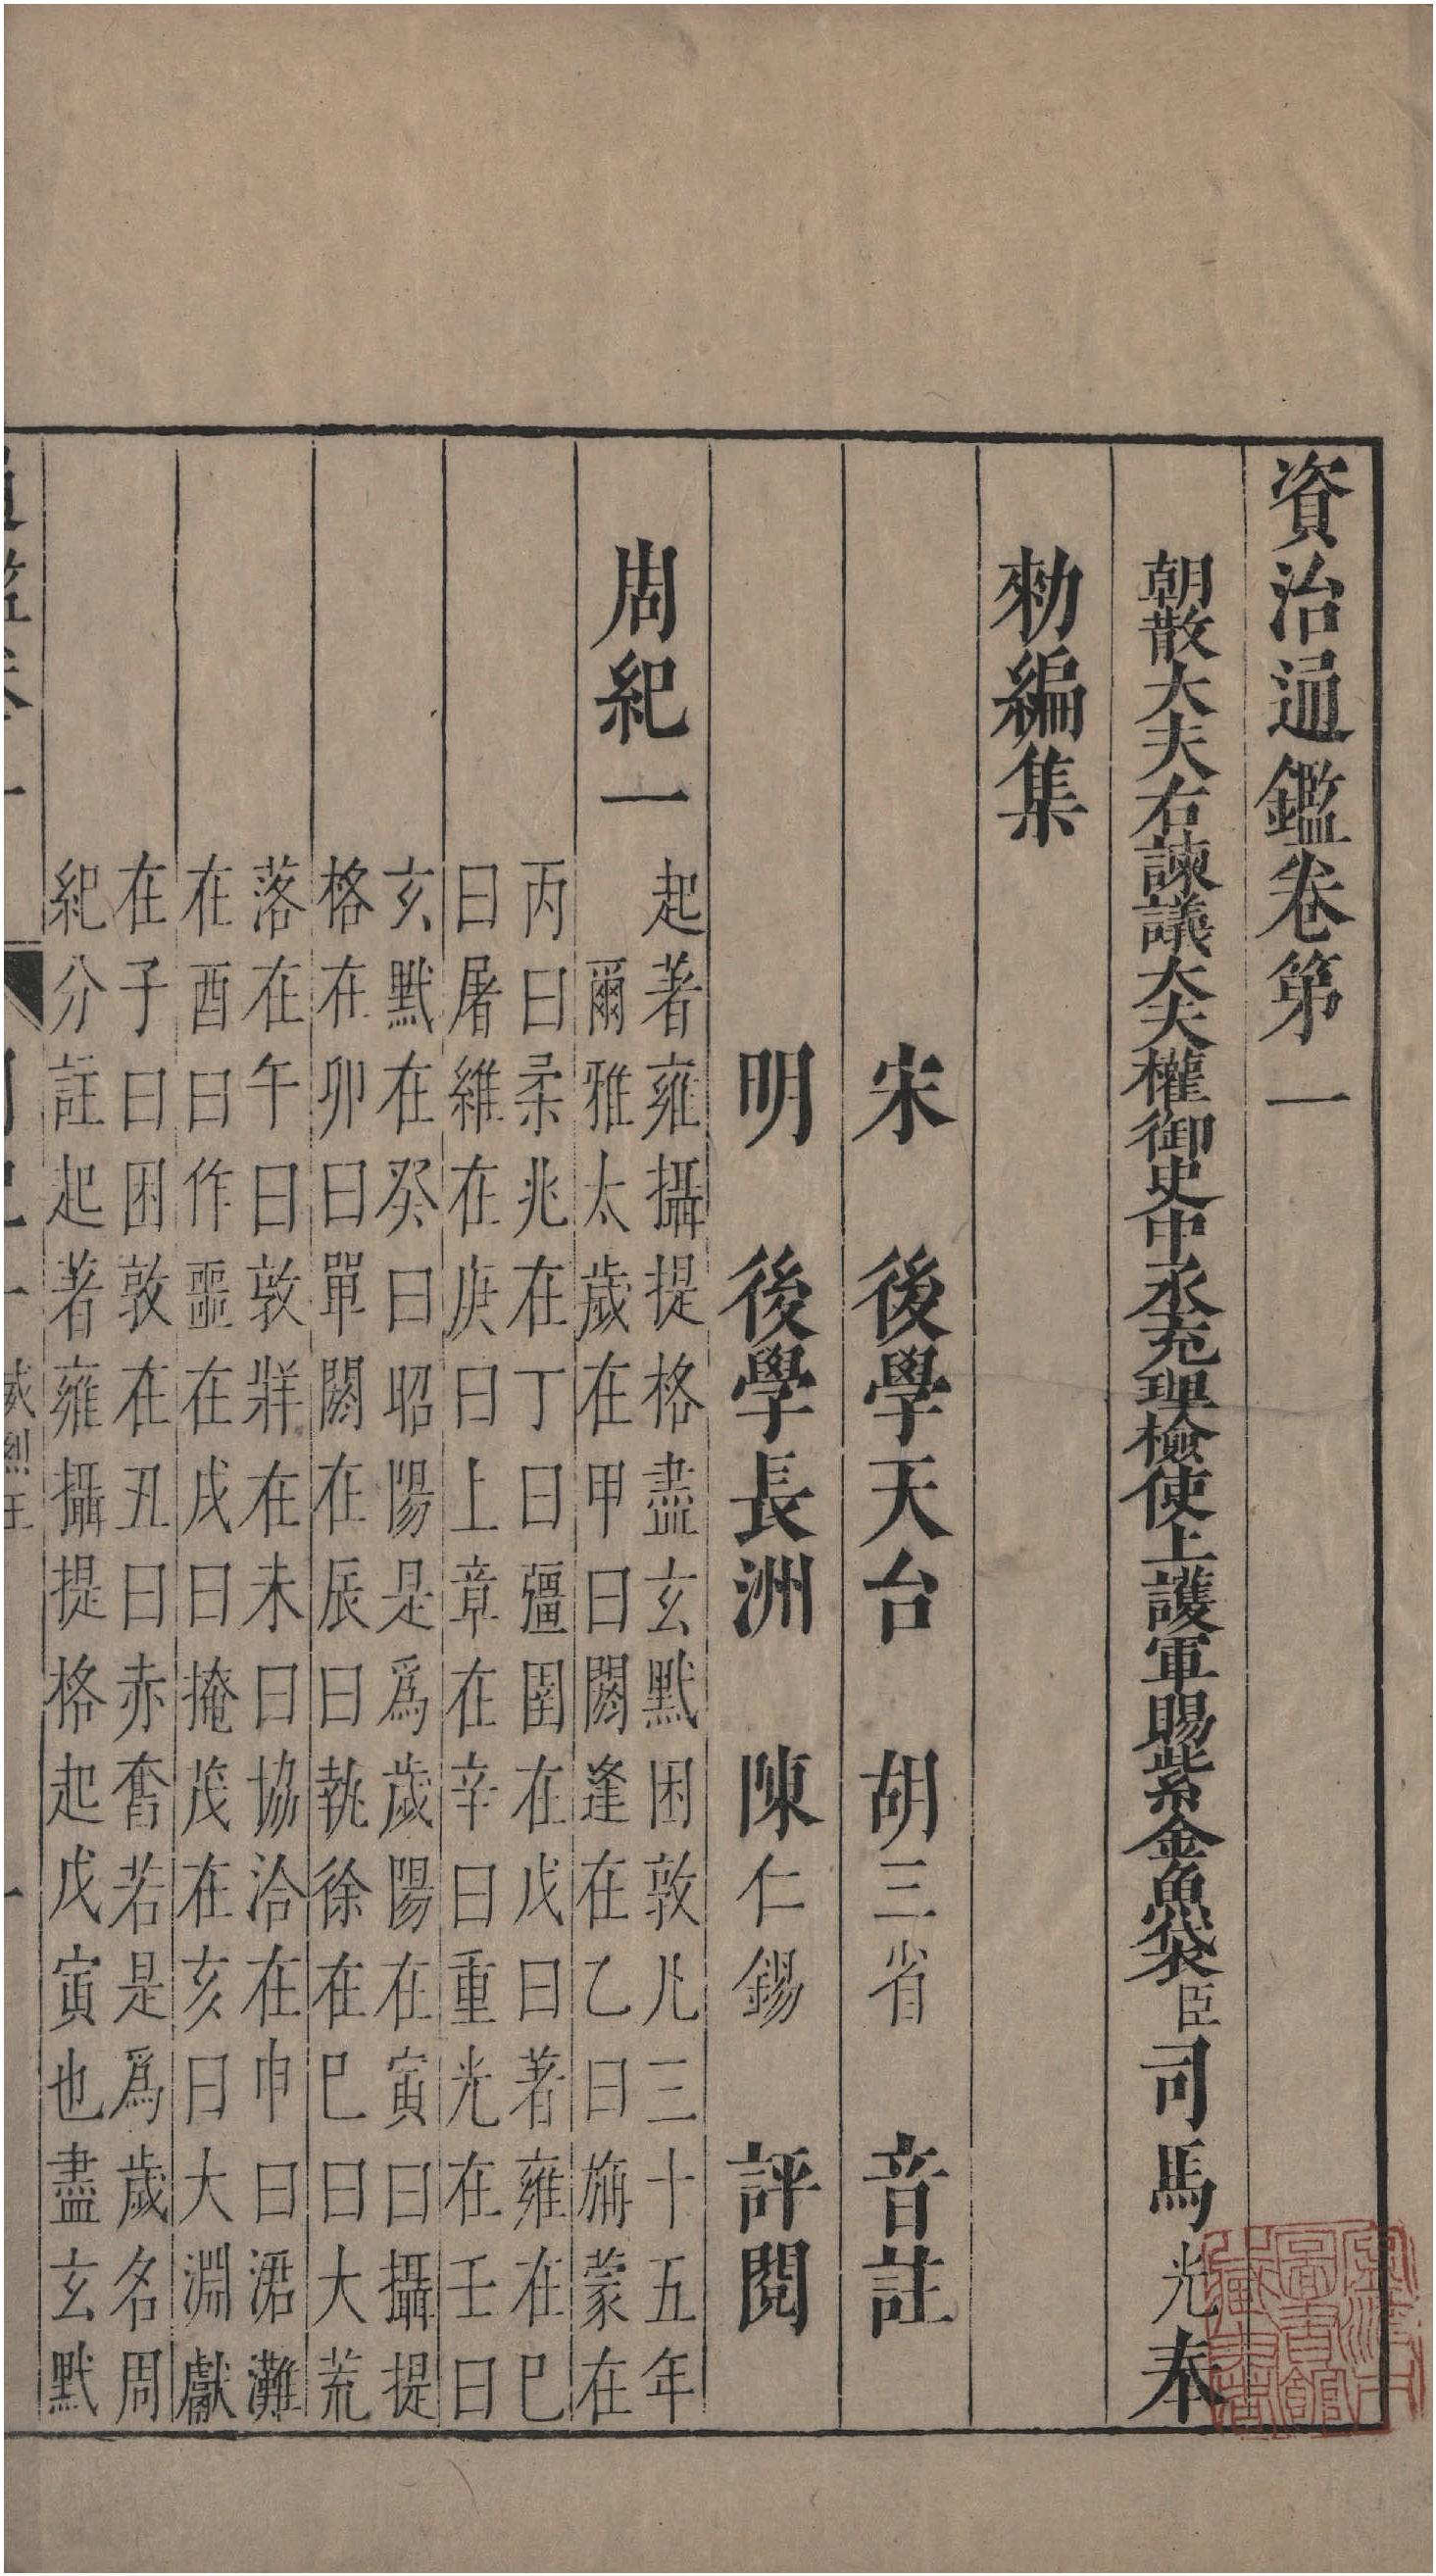 資治通鑑卷第一
朝散大夫右諫議大夫權御史中丞充理檢使上護軍賜紫金魚袋臣司馬光奉
勑編集
宋 後學天台 胡三省 音註
明 後學長洲 陳仁錫 評閱
周紀一 起著雍攝提格盡玄黓困敦凡三十五年
爾雅太歲在甲曰閼逢在乙曰旃蒙在
丙曰柔兆在丁曰彊圉在戊曰著雍在己
曰屠維在庚曰上章在辛曰重光在壬曰
玄黓在癸曰昭陽是爲歲陽在寅曰攝提
格在卯曰單閼在辰曰執徐在巳曰大荒
落在午曰敦牂在未曰協洽在申曰涒灘
在酉曰作噩在戌曰掩茂在亥曰大淵獻
在子曰困敦在丑曰赤奮若是爲歲名周
紀分註起著雍攝提格起戊寅也盡玄黓